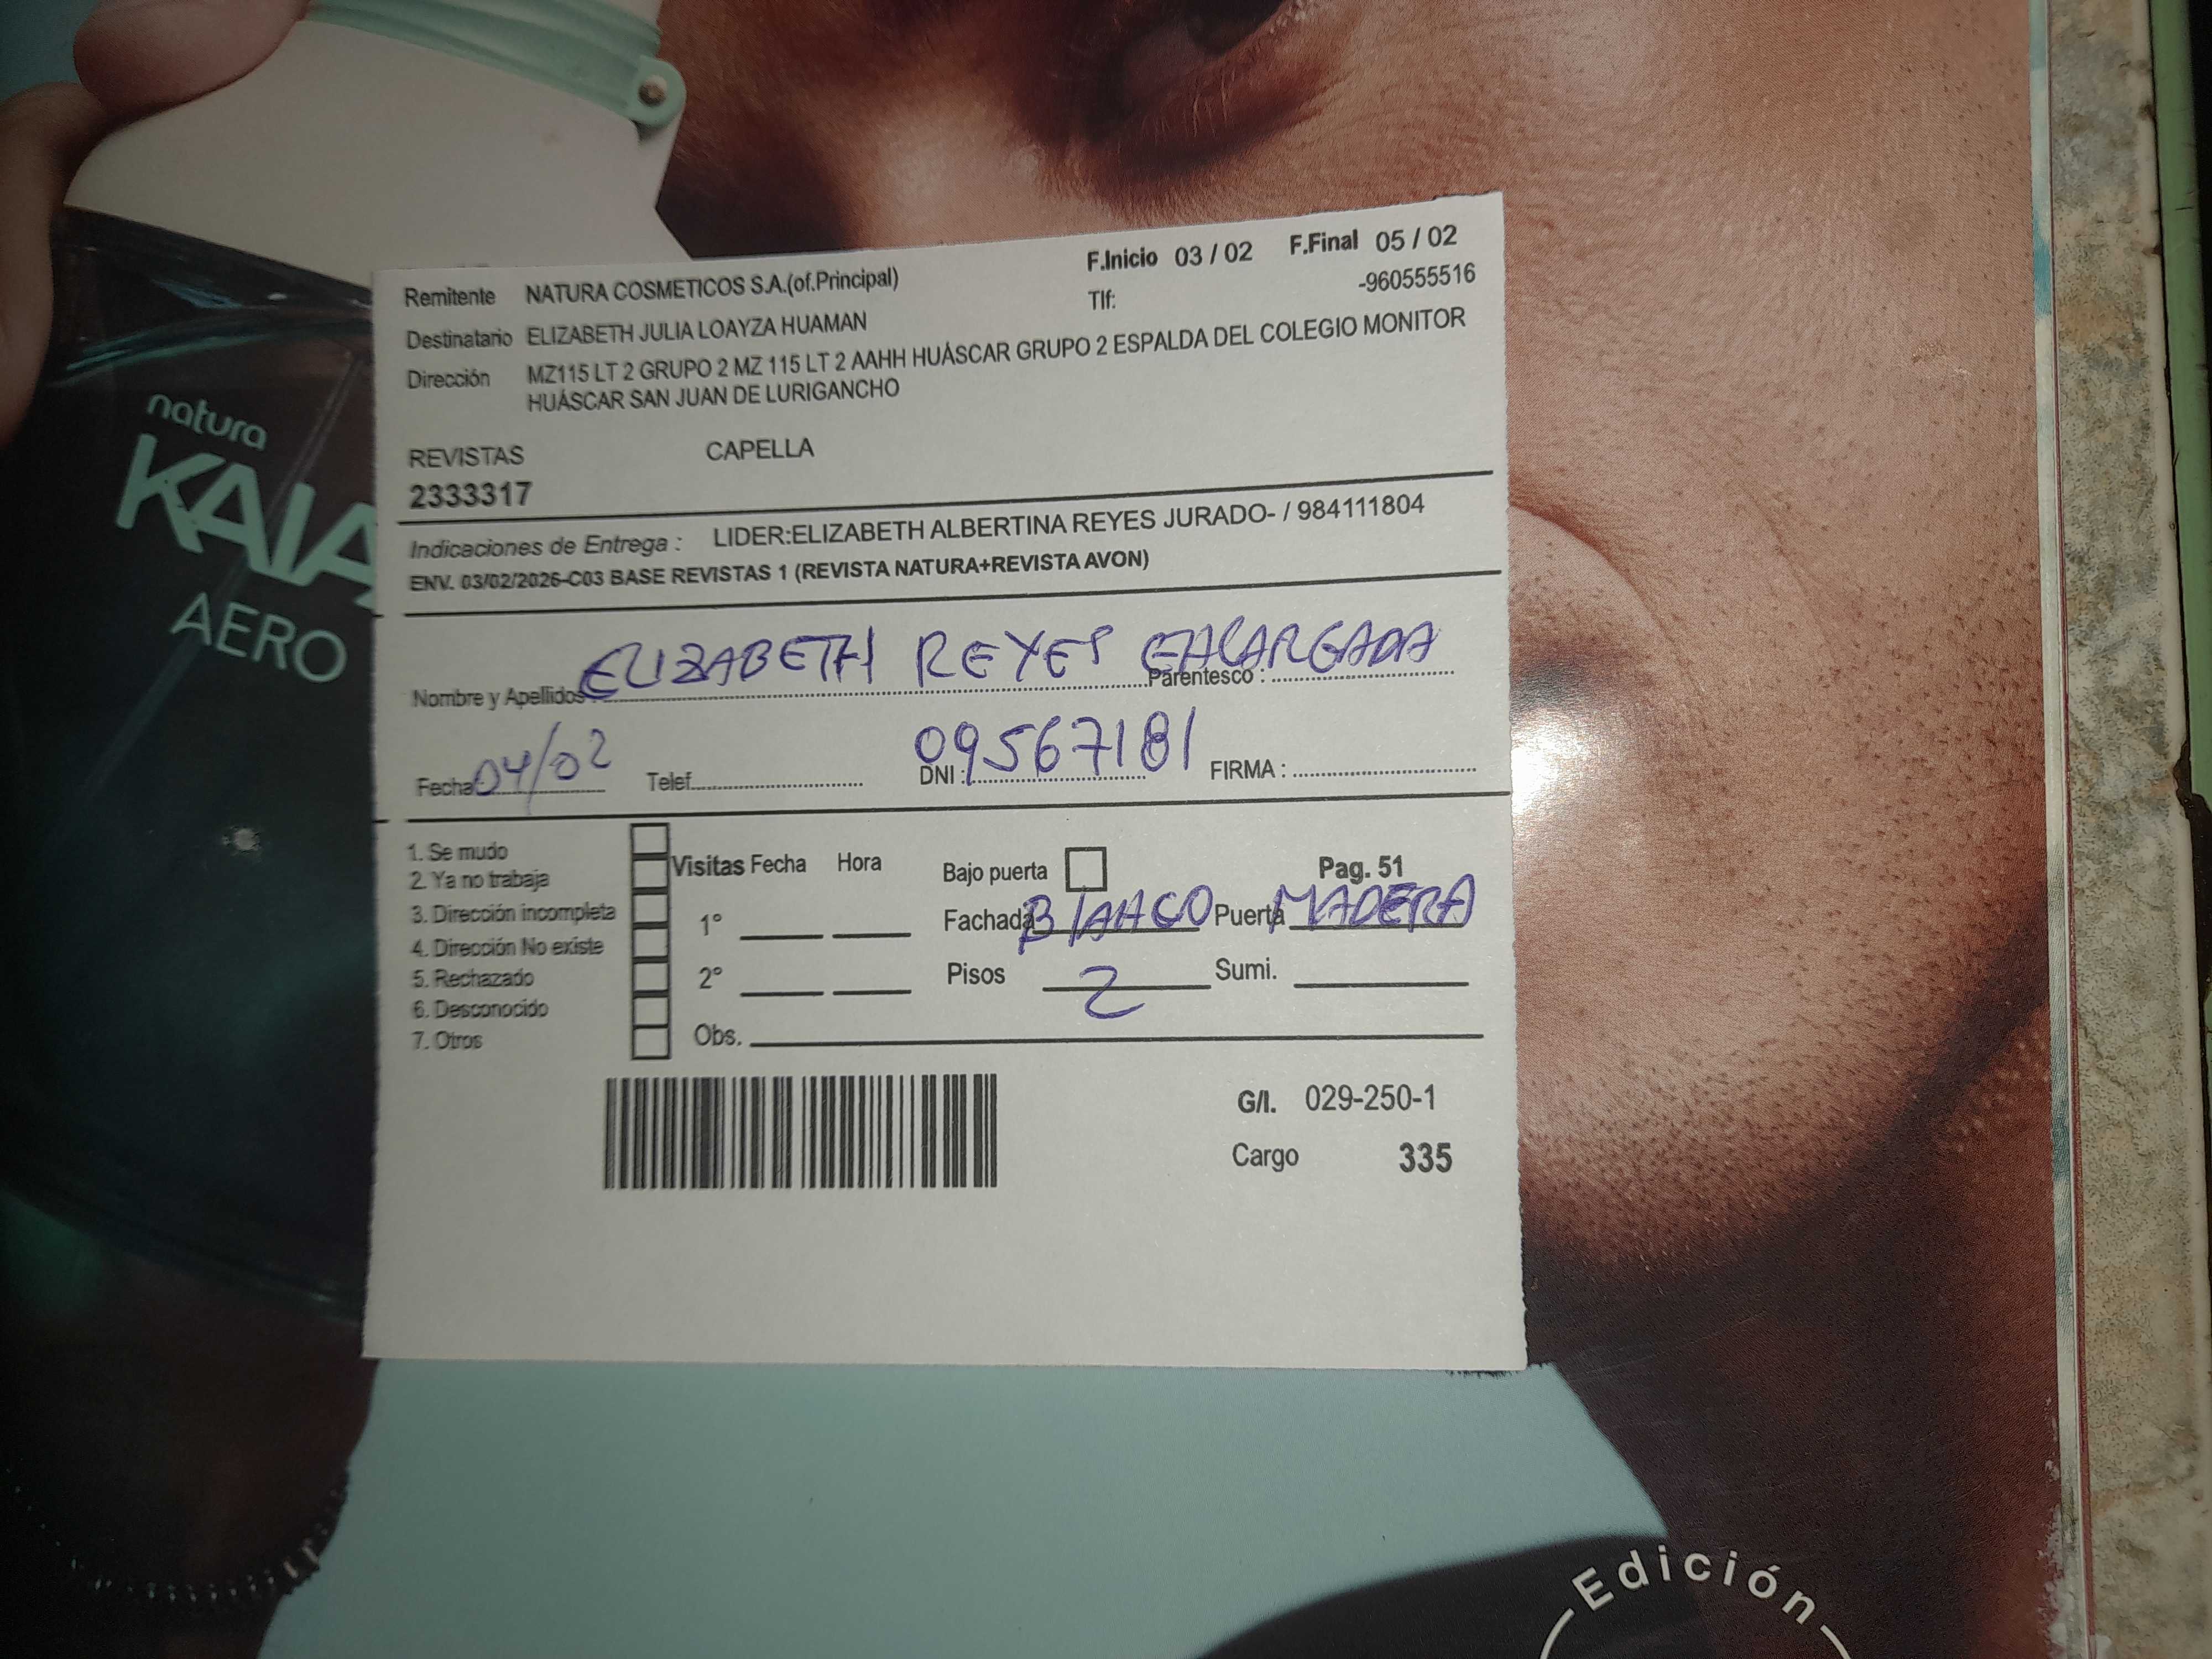 F.Inicio 03 / 02 F.Final 05 / 02
Remitente NATURA COSMETICOS S.A.(of.Principal) Tlf: -960555516
Destinatario ELIZABETH JULIA LOAYZA HUAMAN
Dirección MZ115 LT 2 GRUPO 2 MZ 115 LT 2 AAHH HUÁSCAR GRUPO 2 ESPALDA DEL COLEGIO MONITOR
HUÁSCAR SAN JUAN DE LURIGANCHO
REVISTAS CAPELLA
2333317
Indicaciones de Entrega : LIDER:ELIZABETH ALBERTINA REYES JURADO- / 984111804
ENV. 03/02/2026-C03 BASE REVISTAS 1 (REVISTA NATURA+REVISTA AVON)
Nombre y Apellidos ELIZABETH REYES Parentesco : ENCARGADA
Fecha 04/02 Telef. DNI : 09567181 FIRMA :
1. Se mudo
2. Ya no trabaja
3. Dirección incompleta
4. Dirección No existe
5. Rechazado
6. Desconocido
7. Otros
Visitas Fecha Hora
1°
2°
Obs.
Bajo puerta Pag. 51
Fachada BLANCO Puerta MADERA
Pisos 2 Sumi.
G/I. 029-250-1
Cargo 335
natura
KAIA
AERO
Edición